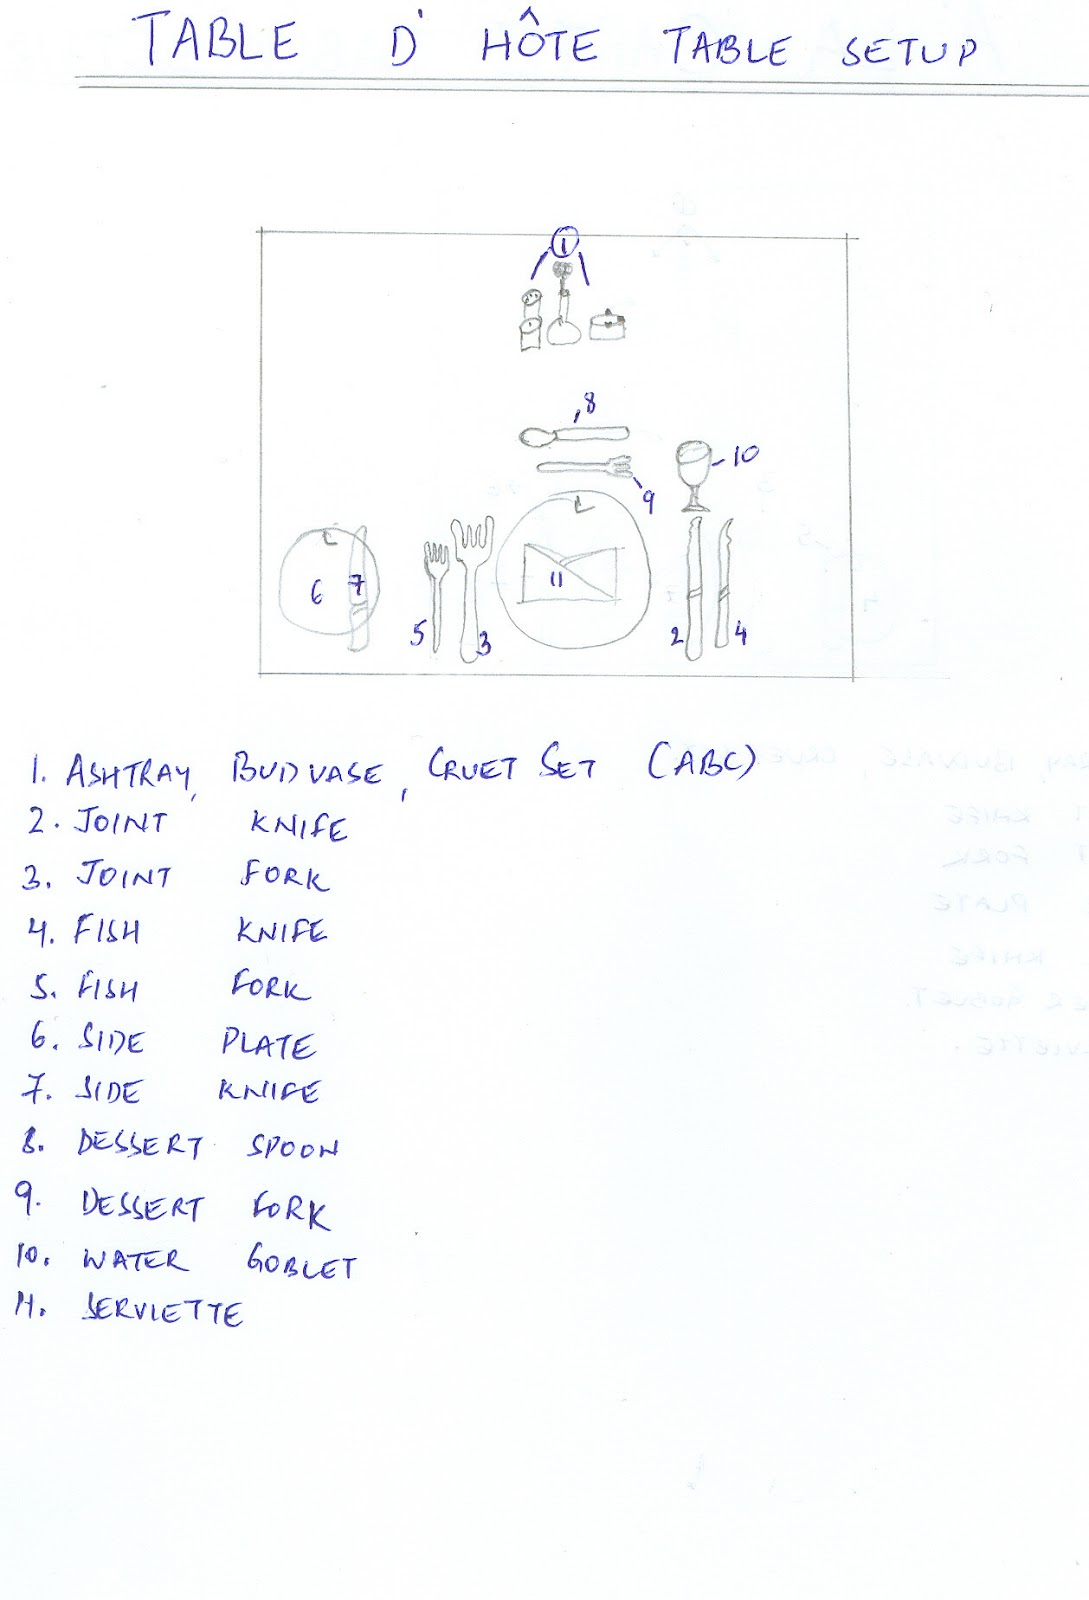 TABLE D' HÔTE TABLE SETUP
1
8
10
9
6 7 11
5 3 2 4
1. ASHTRAY, BUDVASE, CRUET SET (ABC)
2. JOINT KNIFE
3. JOINT FORK
4. FISH KNIFE
5. FISH FORK
6. SIDE PLATE
7. SIDE KNIFE
8. DESSERT SPOON
9. DESSERT FORK
10. WATER GOBLET
11. SERVIETTE